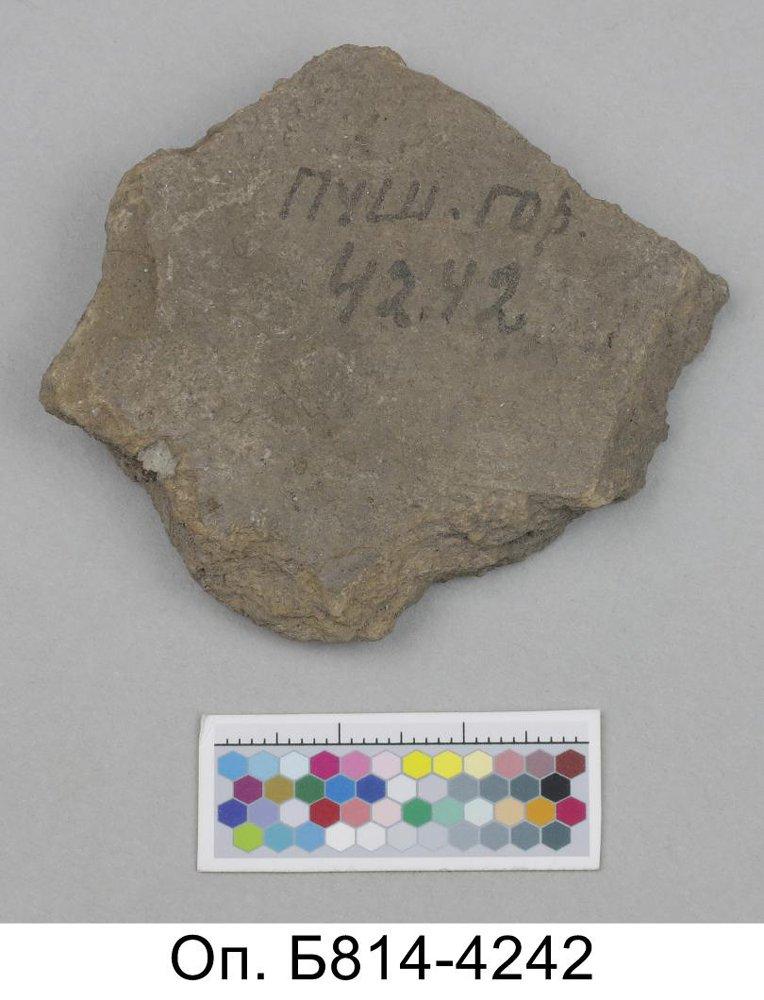 Пуш. гор.
4242
Оп. Б814-4242